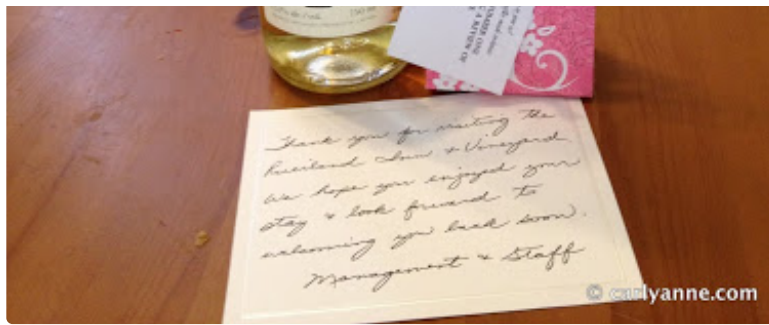 A REVIEW OF
Thank you for visiting the
Inn & Vineyard.
We hope you enjoyed your
stay & look forward to
welcoming you back soon.
Management & Staff
© carlyanne.com